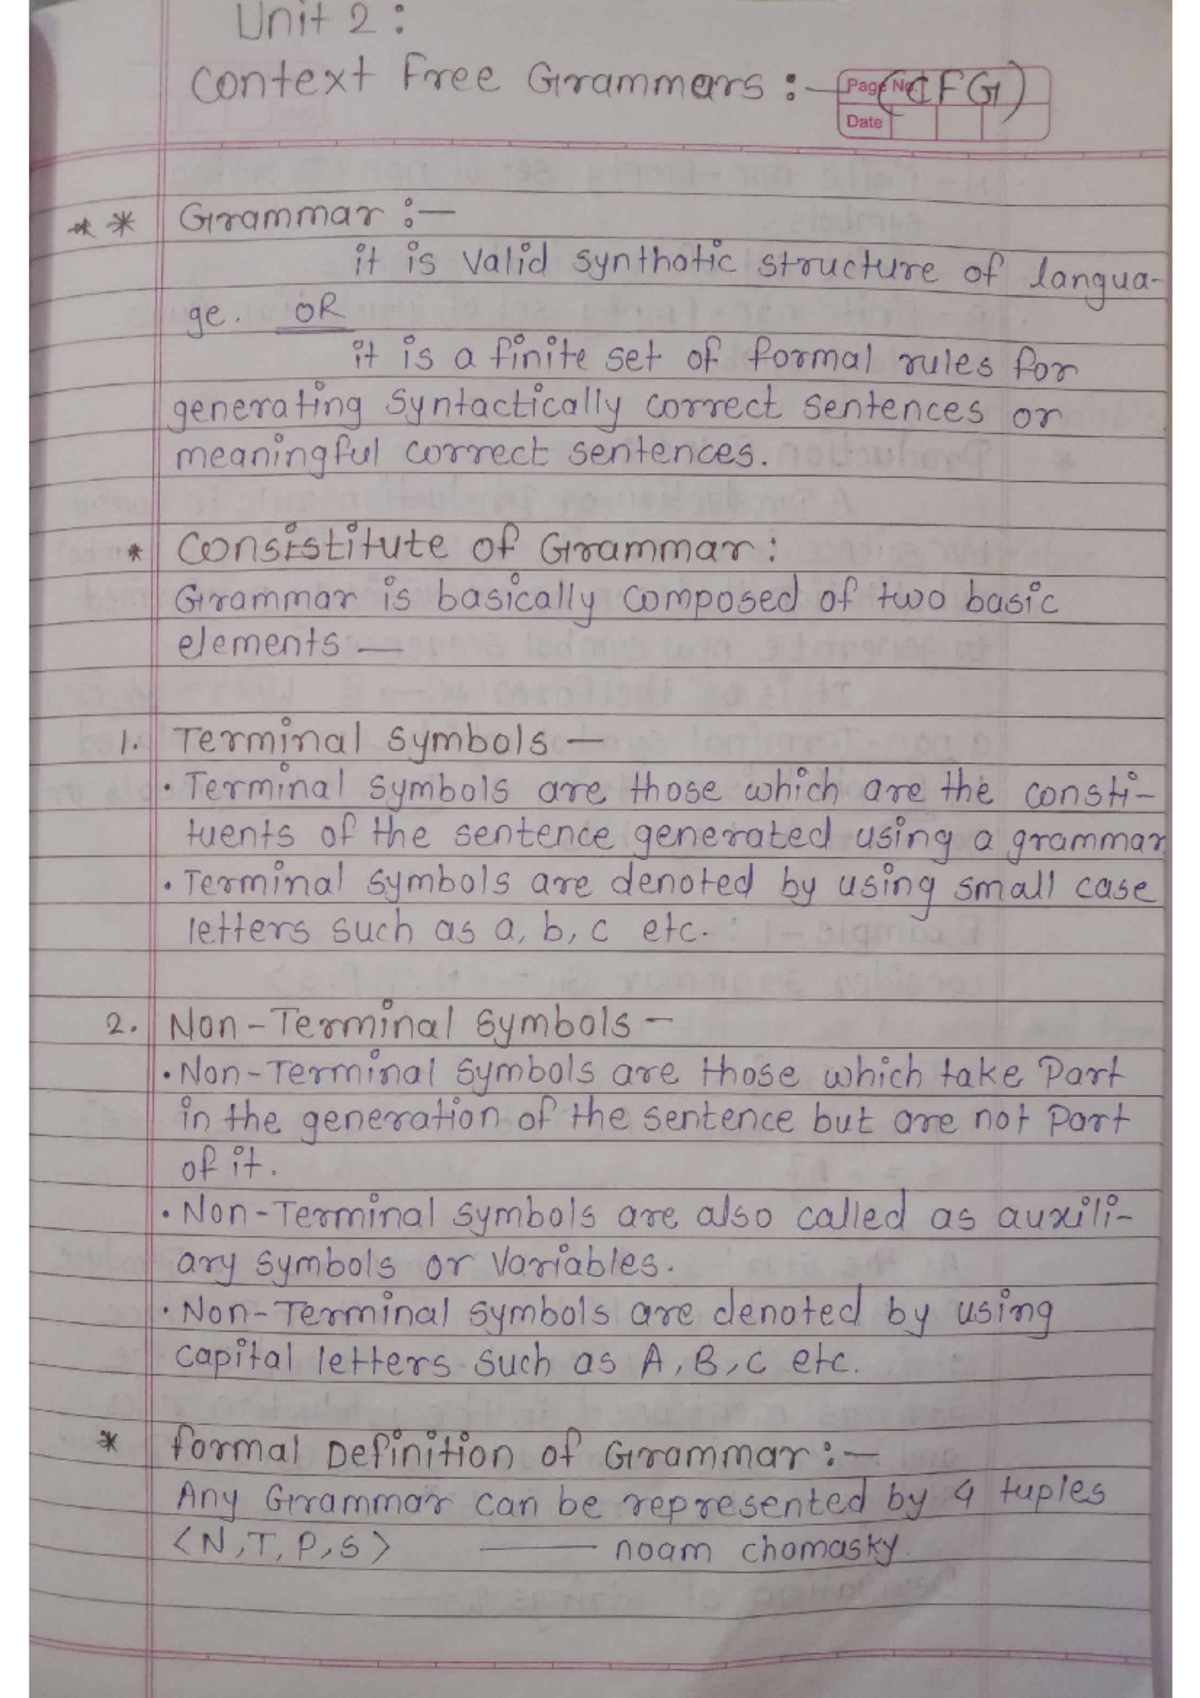 Unit 2 :
Context Free Grammars :- (CFG)
Page No.
Date
** Grammar :-
it is valid synthatic structure of langua-
ge. OR
it is a finite set of formal rules for
generating syntactically correct sentences or
meaningful correct sentences.
* Consistitute of Grammar :
Grammar is basically composed of two basic
elements —
1. Terminal symbols —
• Terminal symbols are those which are the consti-
tuents of the sentence generated using a grammar
• Terminal symbols are denoted by using small case
letters such as a, b, c etc.
2. Non-Terminal symbols —
• Non-Terminal symbols are those which take Part
in the generation of the sentence but are not part
of it.
• Non-Terminal symbols are also called as auxili-
ary symbols or variables.
• Non-Terminal symbols are denoted by using
capital letters such as A, B, C etc.
* Formal Definition of Grammar :-
Any Grammar can be represented by 4 tuples
<N, T, P, S> —— noam chomasky.